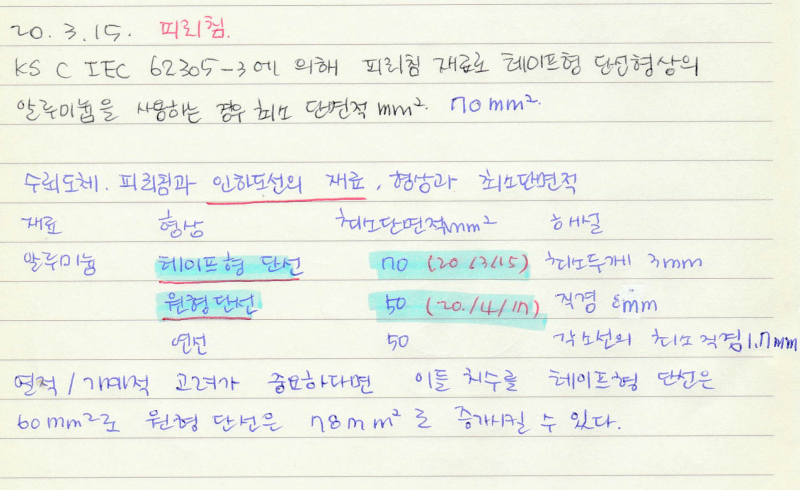 20. 3. 15. 피뢰침.
KS C IEC 62305-3에 의해 피뢰침 재료로 테이프형 단선형상의
알루미늄을 사용하는 경우 최소 단면적 mm². 70mm².
수뢰도체. 피뢰침과 인하도선의 재료, 형상과 최소단면적
재료 형상 최소단면적mm² 해설
알루미늄 테이프형 단선 70 (20/3/15) 최소두께 3mm
원형단선 50 (20/4/17) 직경 8mm
연선 50 각소선의 최소 직경 1.7mm
열적/기계적 고려가 중요하다면 이들 치수를 테이프형 단선은
60mm²로 원형 단선은 78mm²로 증가시킬 수 있다.